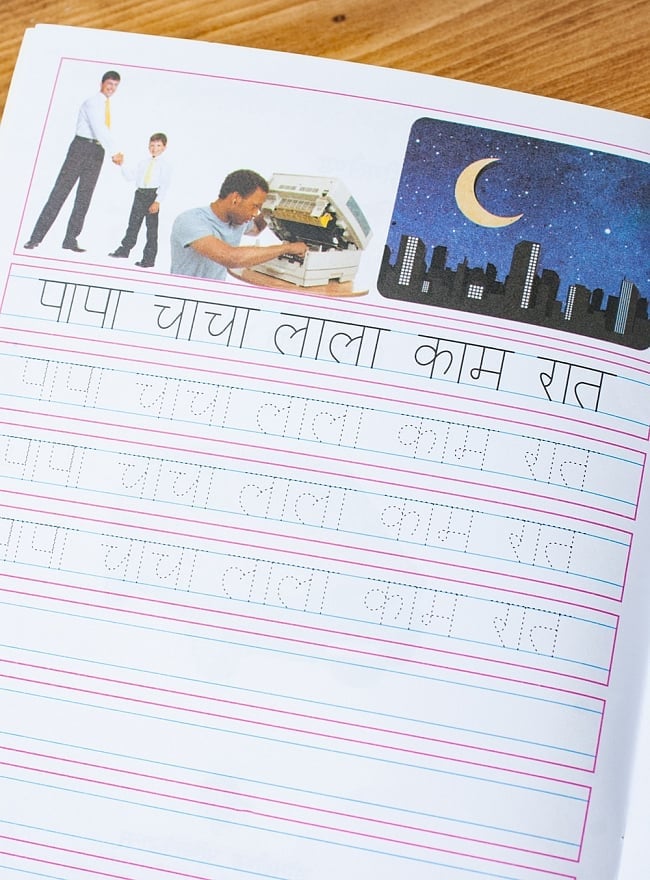 पापा चाचा लाला काम रात
पापा चाचा लाला काम रात
पापा चाचा लाला काम रात
पापा चाचा लाला काम रात